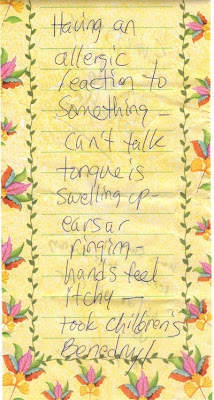 Having an
allergic
reaction to
Something -
can't talk
tongue is
swelling up -
ears ar
ringing -
hands feel
itchy -
took children's
Benadryl